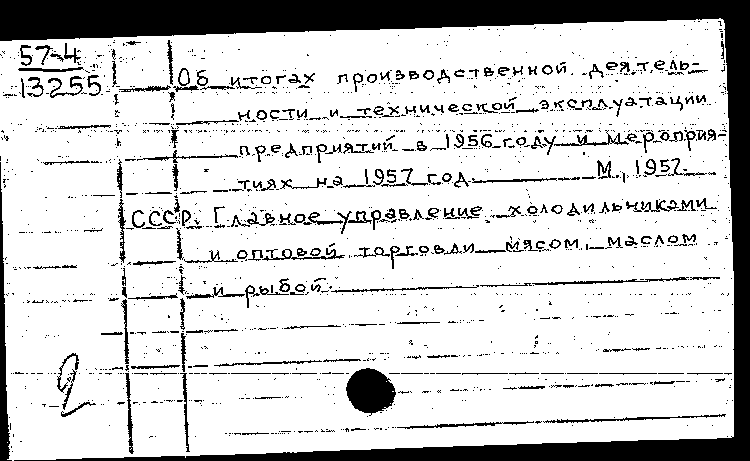 57-4
13255
Об итогах производственной деятель-
ности и технической эксплуатации
предприятий в 1956 году и мероприя-
тиях на 1957 год. М., 1957.
СССР. Главное управление холодильниками
и оптовой торговли мясом, маслом
и рыбой.
2